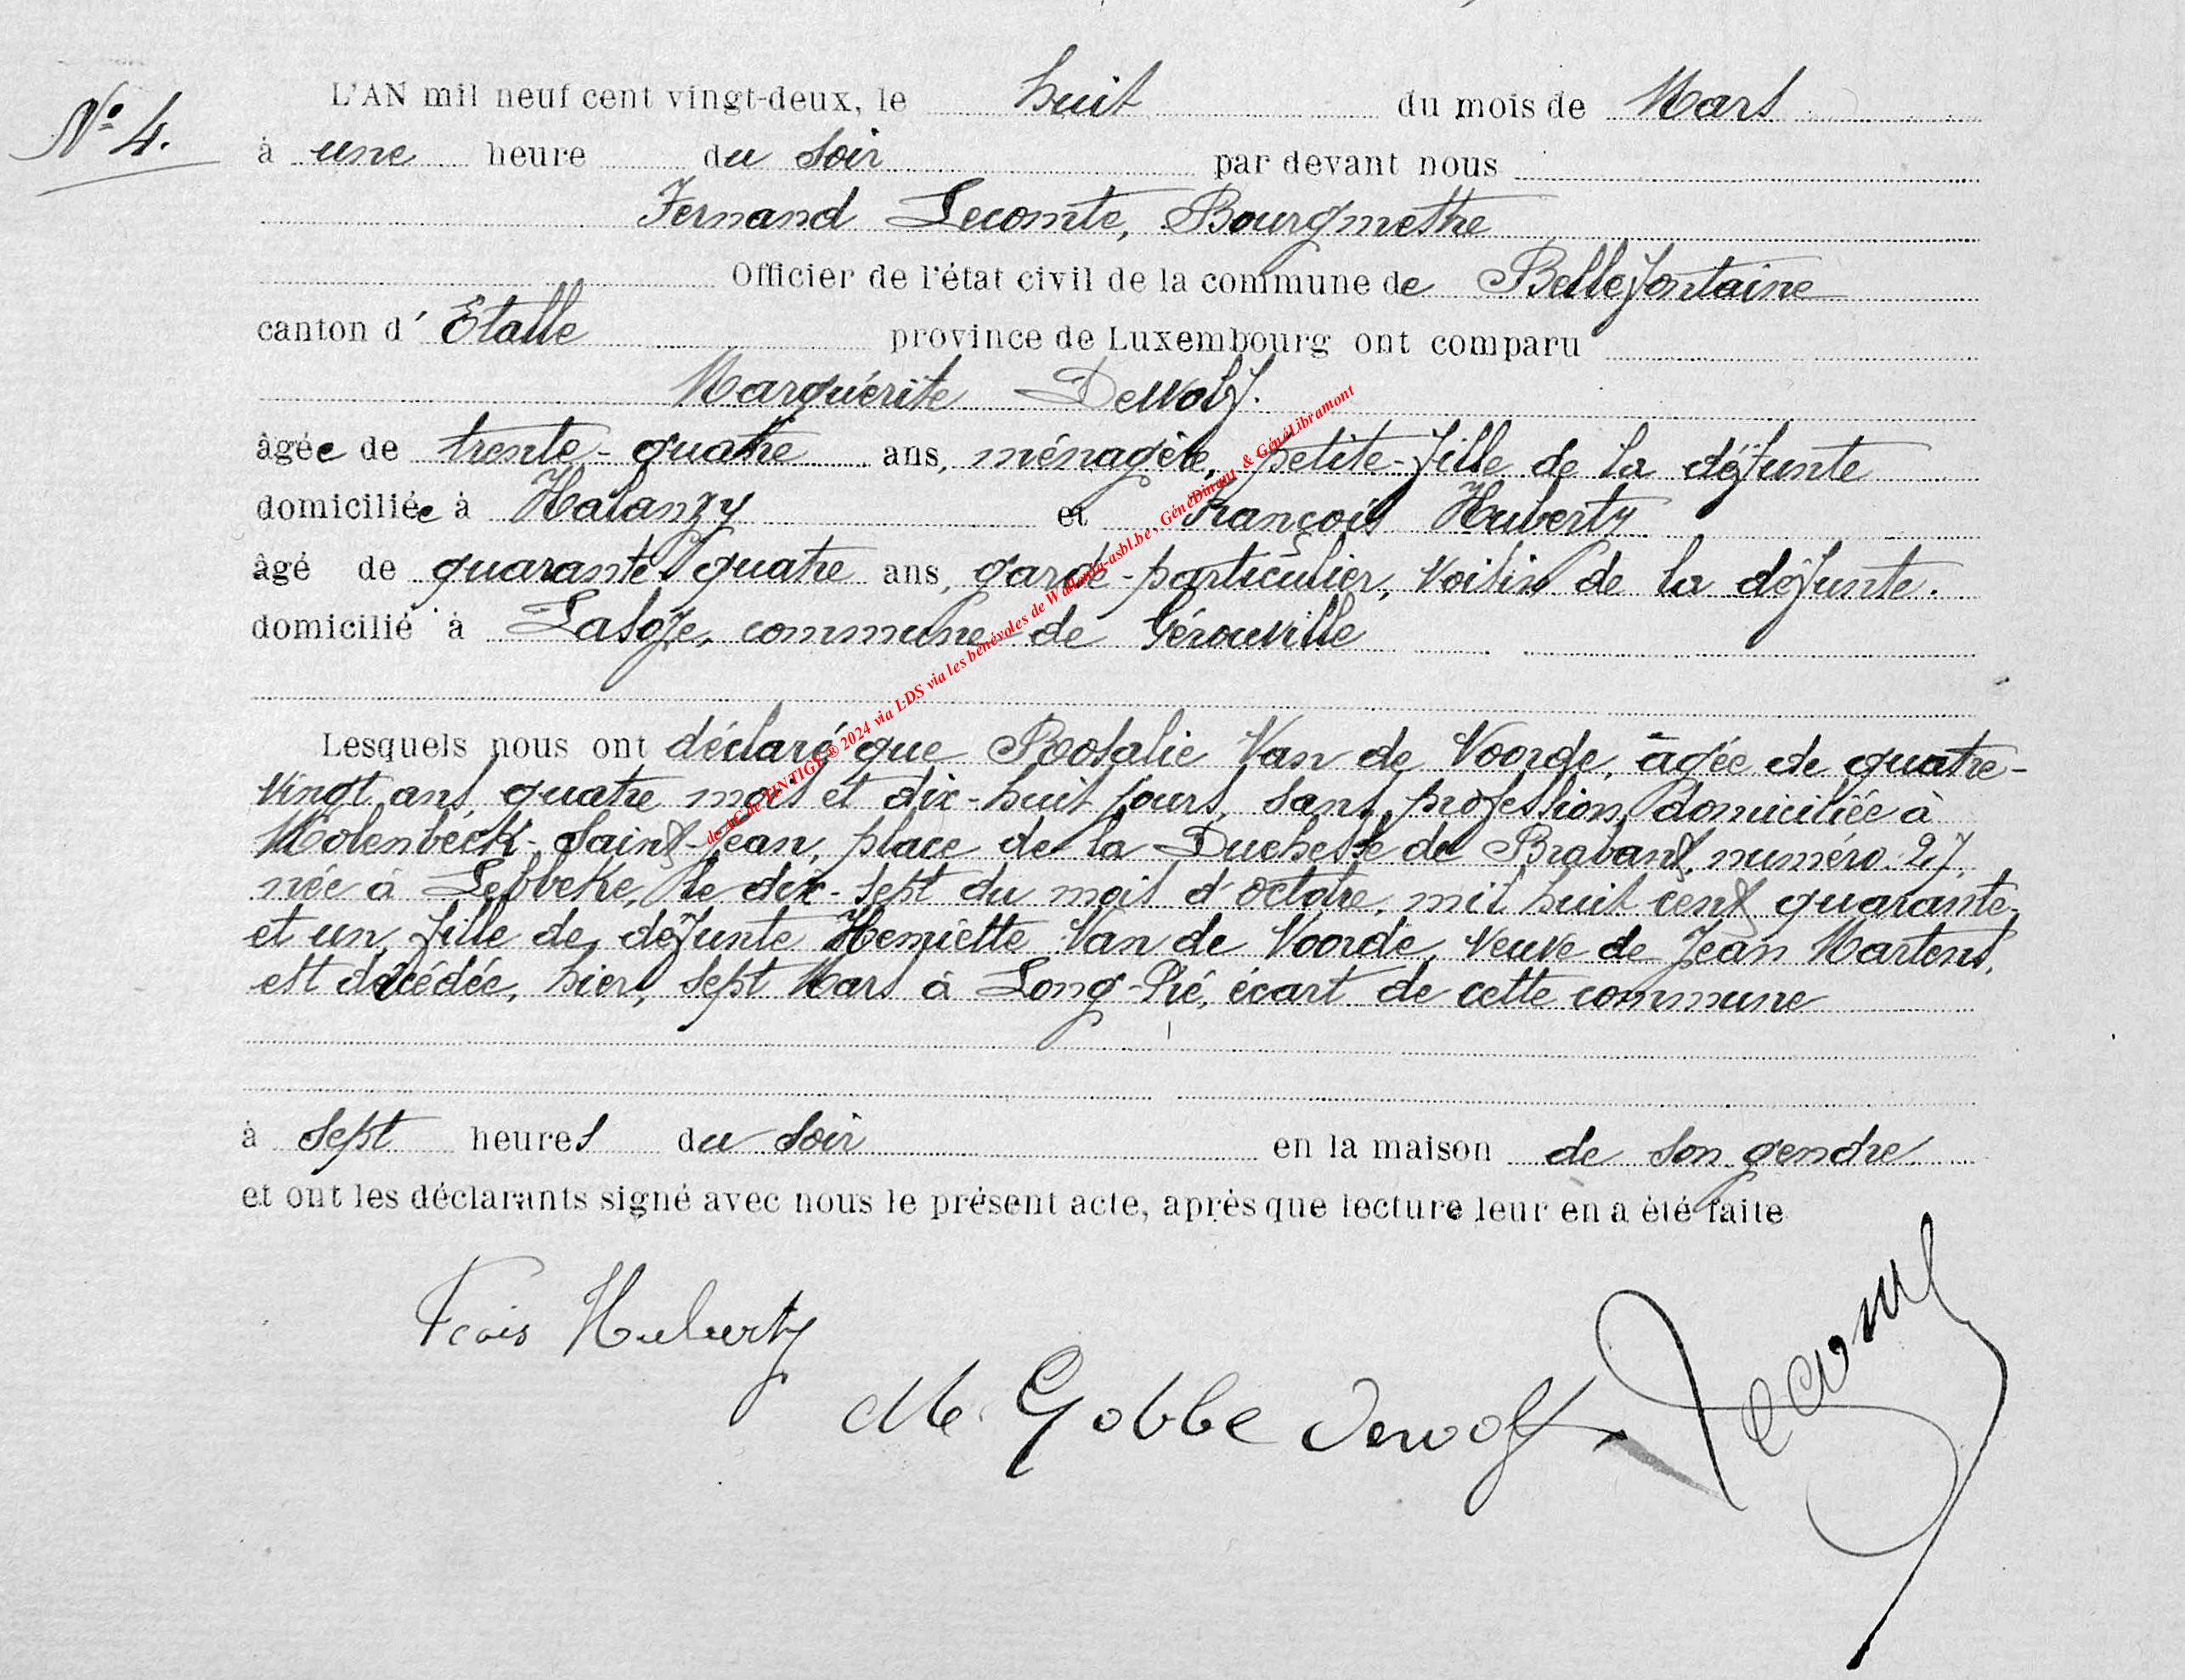 N° 4.
L'AN mil neuf cent vingt-deux, le huit du mois de Mars
à une heure du soir par devant nous
Fernand Lecomte, Bourgmestre
Officier de l'état civil de la commune de Bellefontaine
canton d' Etalle province de Luxembourg ont comparu
Marguérite Dewolf.
âgée de trente-quatre ans, ménagère, petite-fille de la défunte
domiciliée à Halanzy et François Huberty
âgé de quarante quatre ans, garde-particulier, voisin de la défunte.
domicilié à Lasoye, commune de Gérouville
Lesquels nous ont déclaré que Rosalie Van de Voorde, âgée de quatre-
vingt ans, quatre mois et dix-huit jours, sans profession, domiciliée à
Molenbeek-Saint-Jean, place de la Duchesse de Brabant, numéro 27,
née à Lebbeke, le dix-sept du mois d'octobre, mil huit cent quarante
et un, fille de défunte Henriette Van de Voorde, veuve de Jean Martens,
est décédée, hier, sept Mars à Long-Pré, écart de cette commune
à sept heures du soir en la maison de son gendre
et ont les déclarants signé avec nous le présent acte, après que lecture leur en a été faite
Fçois Huberty
M. Gobbe Dewolf
Lecomte
de AC de TINTIGNY ® 2024 via LDS via les bénévoles de Wallonia-asbl.be, GénéDinant & GénéLibramont